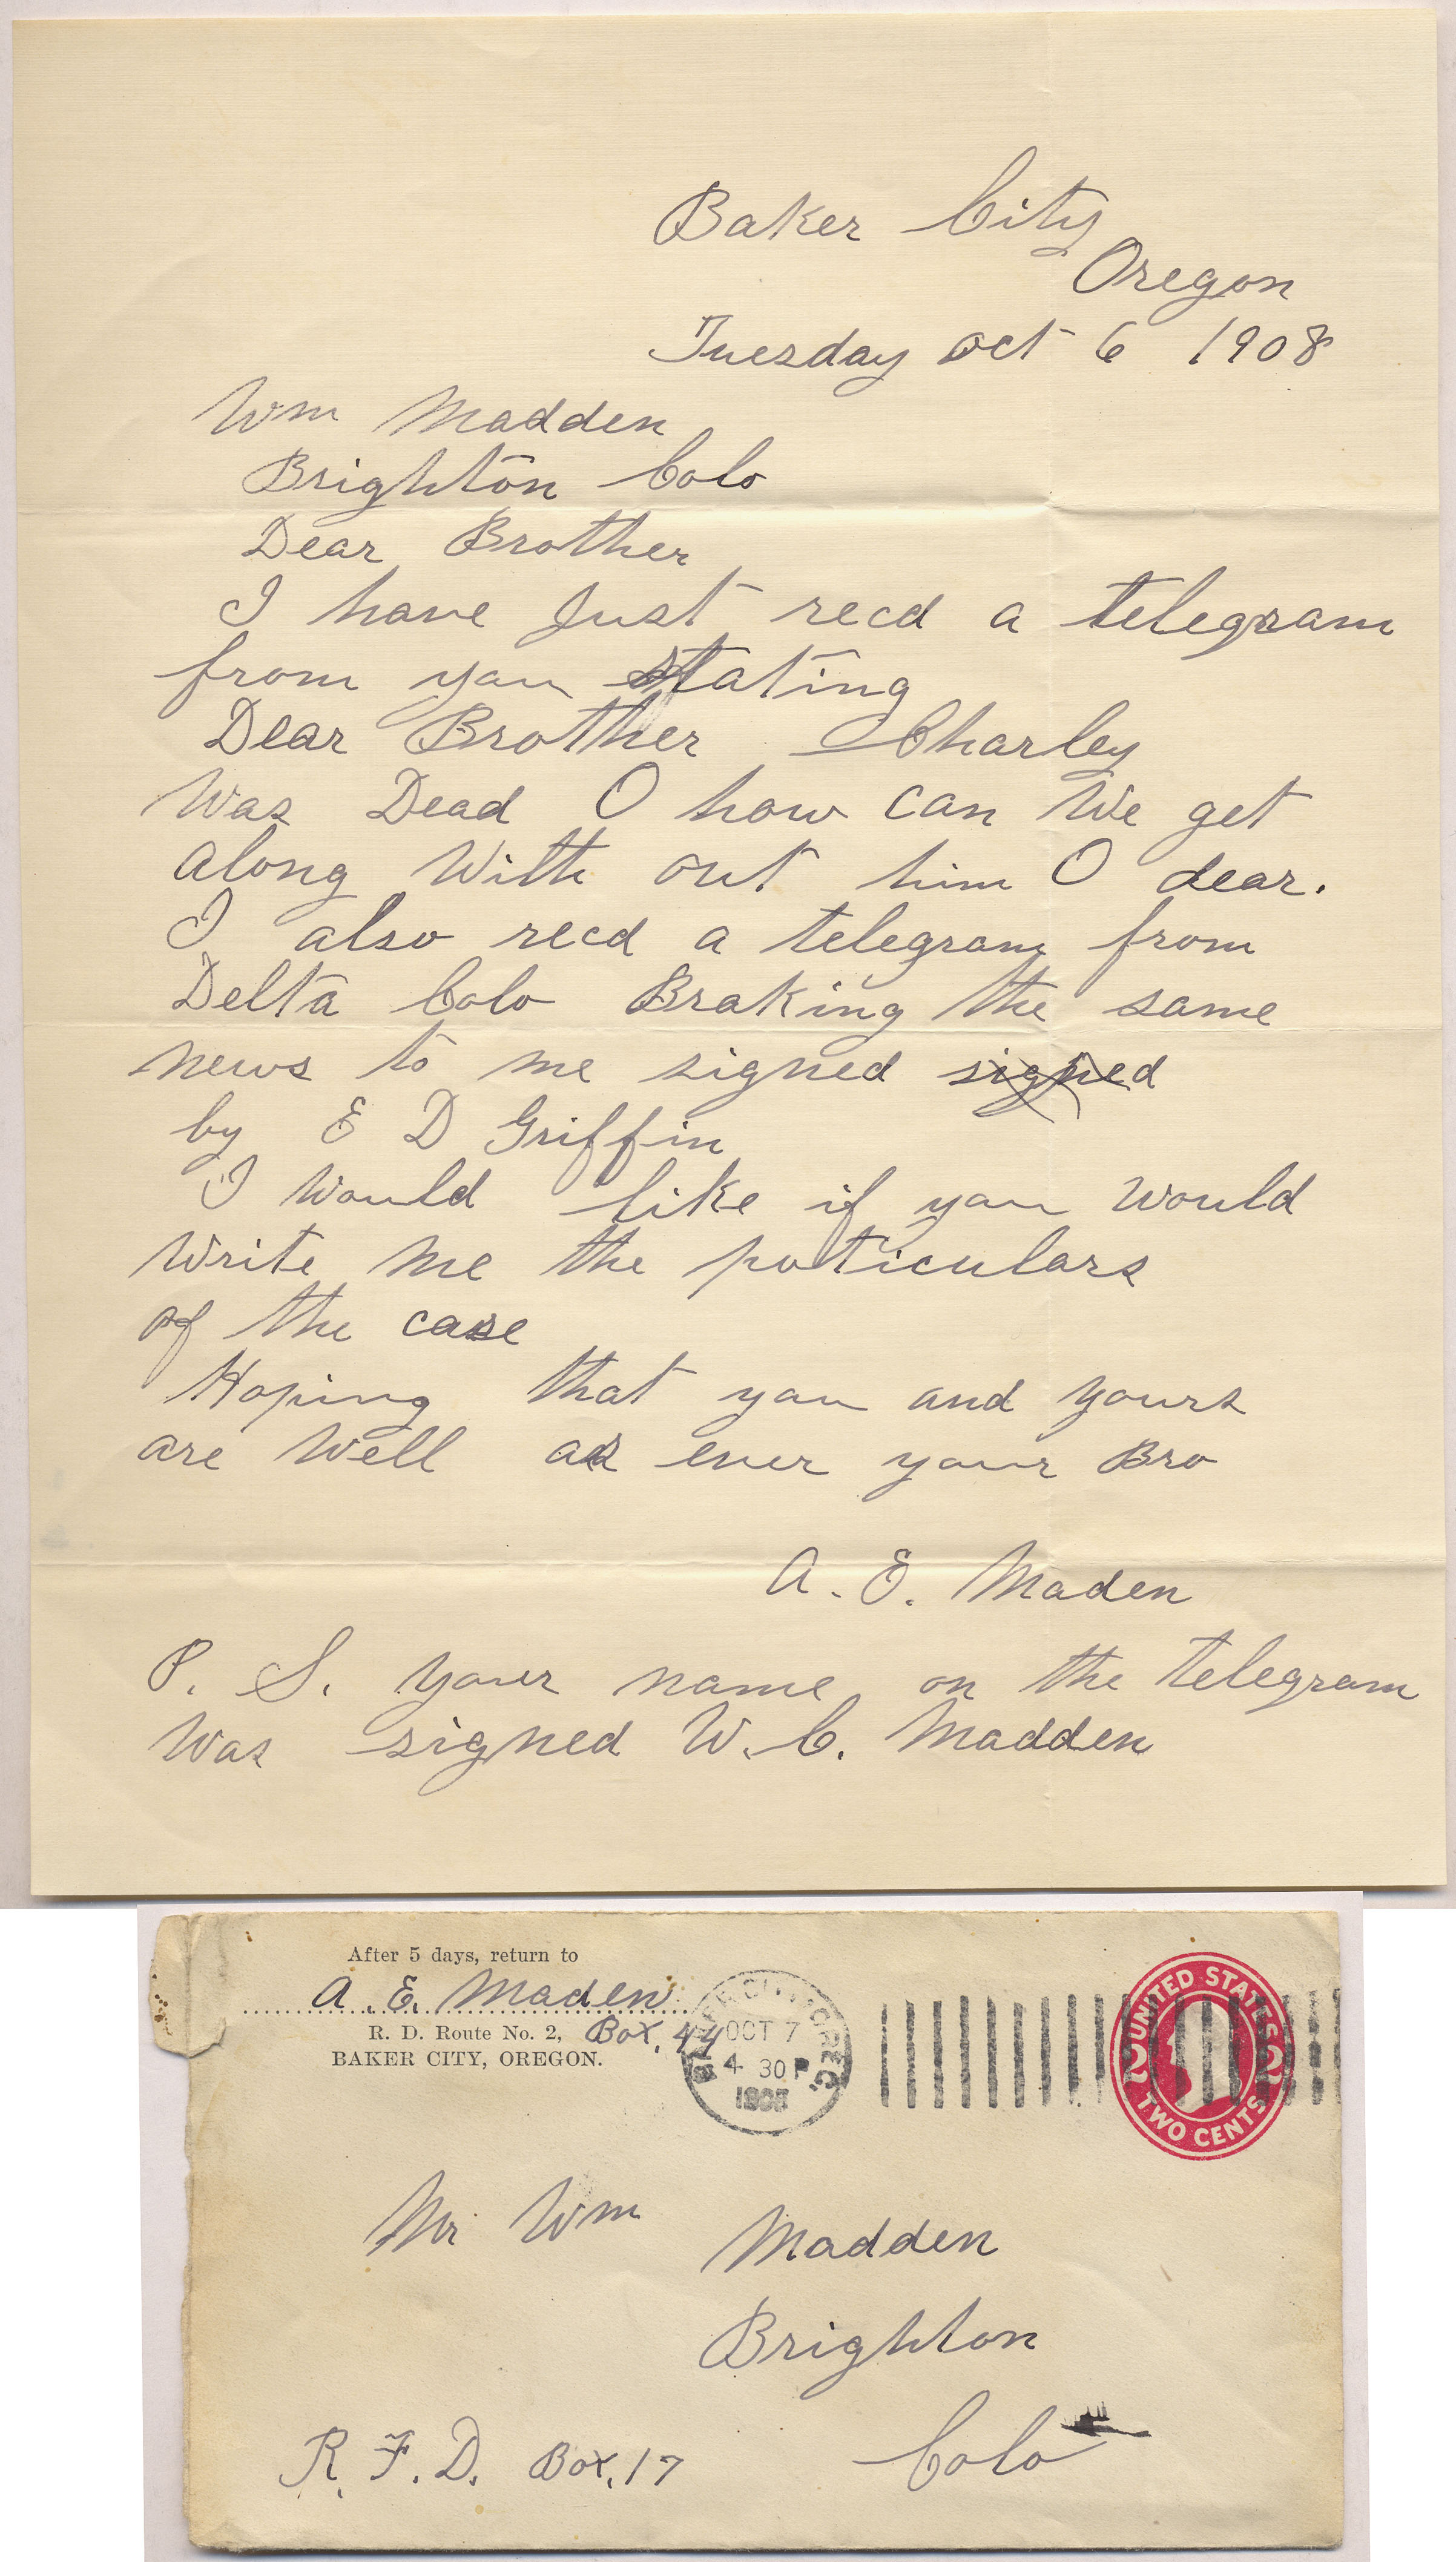 Baker City
Oregon
Tuesday Oct 6 1908
Wm Madden
Brighton Colo
Dear Brother
I have Just recd a telegram
from you stating
Dear Brother Charley
Was Dead O how can We get
along With out him O dear.
I also recd a telegram from
Delta Colo Braking the same
news to me signed signed
by E D Griffin
I Would like if you would
Write me the puticulars
of the case
Hoping that you and yours
are Well as ever your Bro
A. E. Maden
P. S. your name on the telegram
Was signed W. C. Madden
After 5 days, return to
A. E. Maden
R. D. Route No. 2, Box. 44
BAKER CITY, OREGON.
BAKER CITY, OREG.
OCT 7
4 30 P
1908
UNITED STATES
2 2
TWO CENTS
Mr Wm Madden
Brighton
Colo
R. F. D. Box. 17